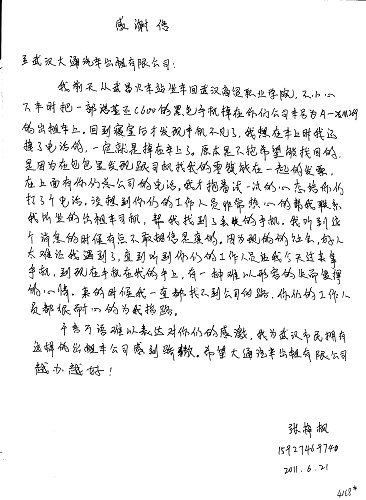 感谢信
至武汉大通汽车出租有限公司:
我前天从武昌火车站坐车回武汉商贸职业学院,不小心
下车时把一部诺基亚C600的黑色手机掉在你们公司车名为A-
的出租车上。回到寝室后才发现手机不见了,我想在车上时我还
接了电话的,一定就是掉在车上了。原本是不抱希望能找回的,
是因为在包包里发现跟司机找我的零钱放在一起的发票,
在上面有你们总公司的电话,我才抱着试一试的心态给你们
打了个电话。没想到你们的工作人员非常热心的帮我联系
我所坐的出租车司机,帮我找到了丢失的手机。我听到这
个消息的时候有点不敢相信是真的,因为现在的社会,好人
太难让我遇到了。直到听到你们的工作人员让我今天过来拿
手机,到现在手机在我的手上,有一种难以形容的失而复得
的心情。来的时候我一直都找不到公司的路,你们的工作人
员都很耐心的为我指路。
千言万语难以表达对你们的感激,我为武汉市民拥有
这样的出租车公司感到骄傲。希望大通汽车出租有限公司
越办越好!
张梅枫
15927469740
2011.6.21